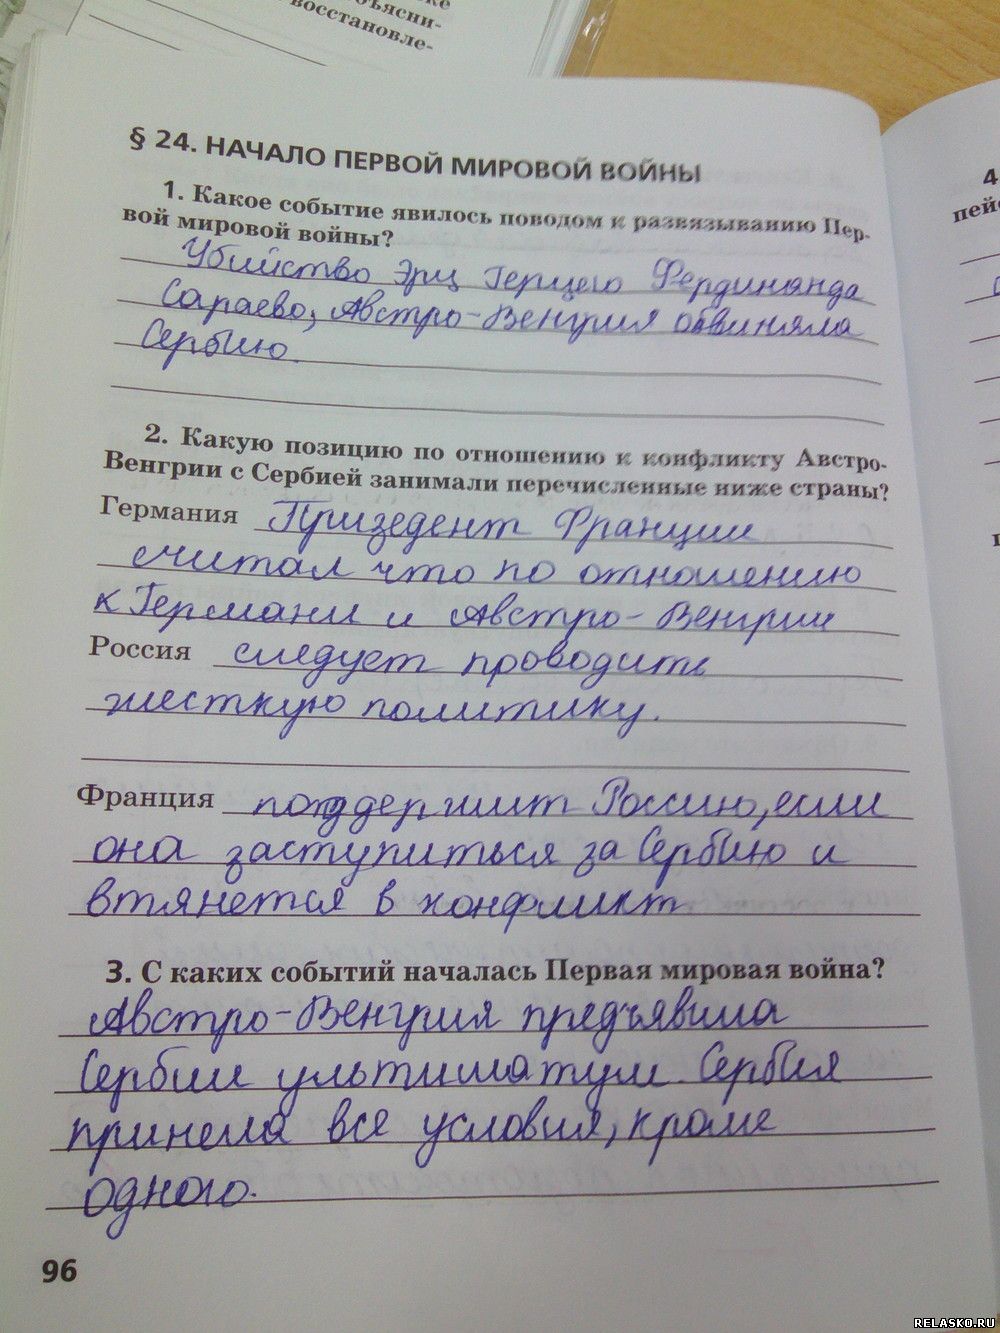 ке
объясни-
восстановле-
§ 24. НАЧАЛО ПЕРВОЙ МИРОВОЙ ВОЙНЫ
1. Какое событие явилось поводом к развязыванию Пер-
вой мировой войны?
Убийство Эрц Герцего Фердинанда
Сараево, Австро-Венгрия обвиняла
Сербию.
2. Какую позицию по отношению к конфликту Австро-
Венгрии с Сербией занимали перечисленные ниже страны?
Германия Призедент Франции
считал что по отношению
к Германи и Австро-Венгрии
Россия следует проводить
жесткую политику.
Франция поддержит Россию, если
она заступиться за Сербию и
втянется в конфликт
3. С каких событий началась Первая мировая война?
Австро-Венгрия предъявила
Сербии ультиматум. Сербия
принела все условия, кроме
одного.
96
4
пей
RELASKO.RU